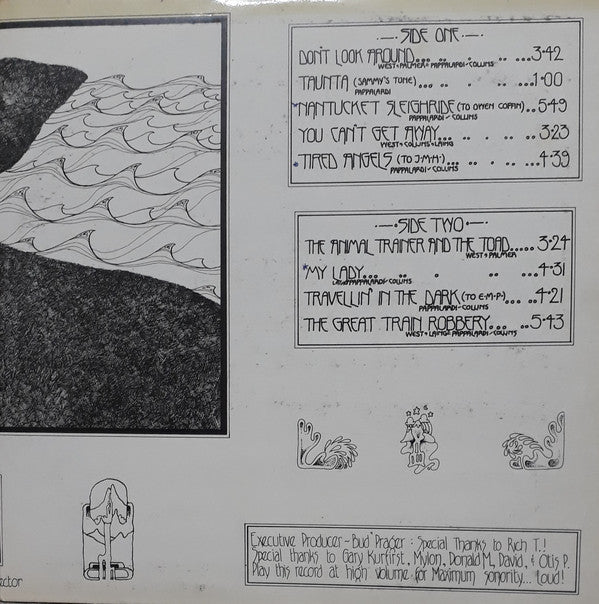 SIDE ONE
DON'T LOOK AROUND... .. . .. .. ...3·42
WEST·PALMER·PAPPALARDI·COLLINS
TAUNTA (SAMMY'S TUNE)... .. . .. ...1·00
PAPPALARDI
NANTUCKET SLEIGHRIDE (TO OWEN COFFIN)..5·49
PAPPALARDI·COLLINS
YOU CAN'T GET AWAY... .. . .. ...3·23
WEST·COLLINS·LAING
TIRED ANGELS (TO J·M·H·)... .. . .. ...4·39
PAPPALARDI·COLLINS
SIDE TWO
THE ANIMAL TRAINER AND THE TOAD..... 3·24
WEST·PALMER
MY LADY... .. . .. ...4·31
LAING·PAPPALARDI·COLLINS
TRAVELLIN' IN THE DARK (TO E·M·P·)... ..4·21
PAPPALARDI·COLLINS
THE GREAT TRAIN ROBBERY... .. ..5·43
WEST·LAING·PAPPALARDI·COLLINS
Executive Producer - Bud Prager : Special Thanks to Rich T.!
Special thanks to Gary Kurfirst, Mylon, Donald M, David, & Otis P.
Play this record at high volume for Maximum sonority... Loud!
ector